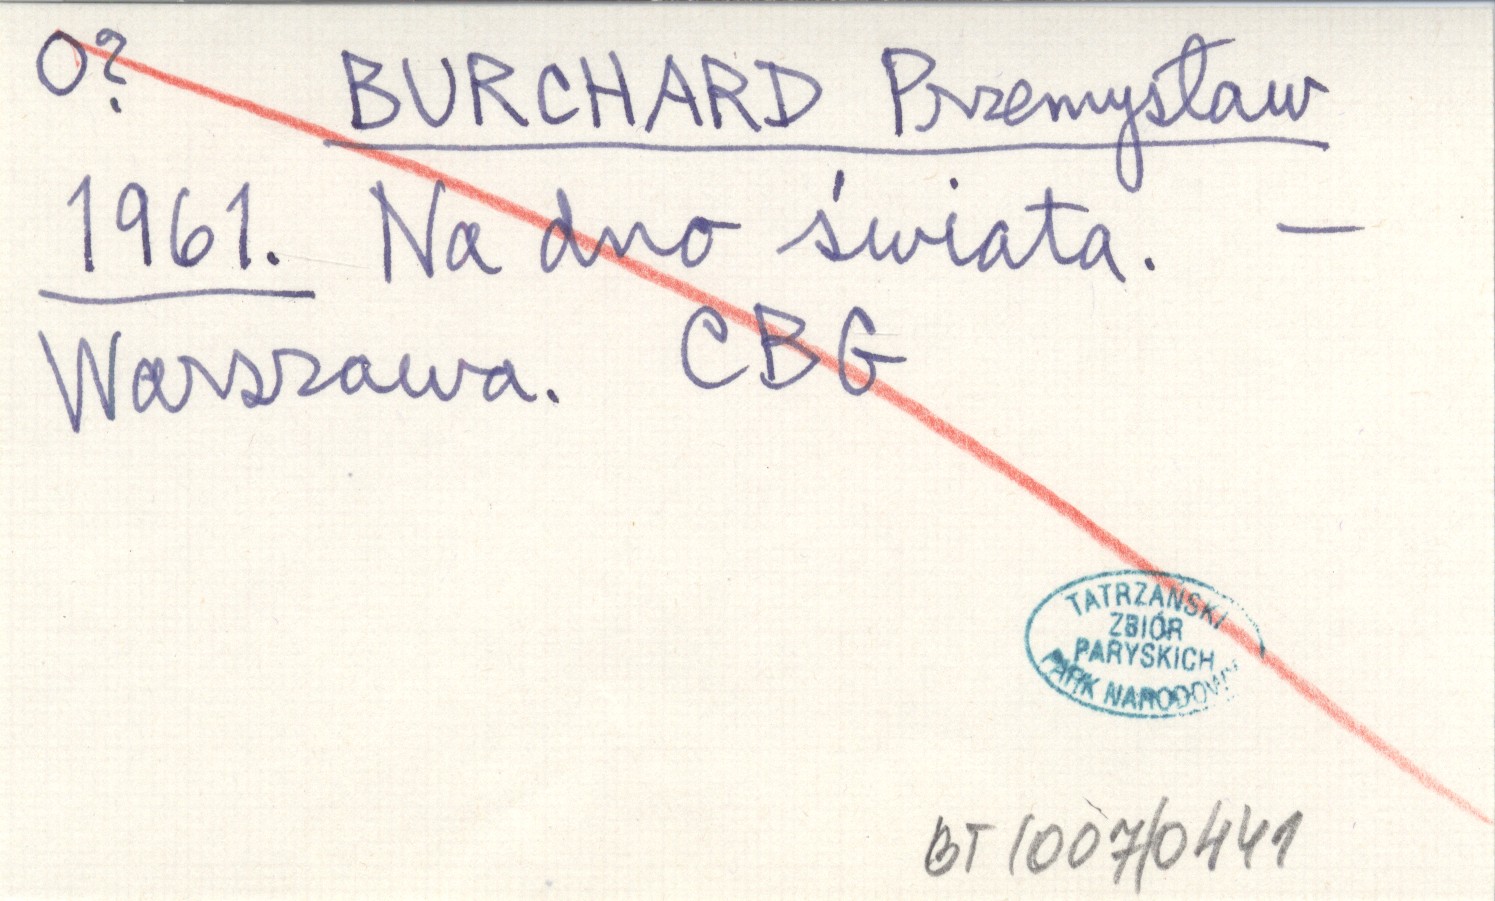 O? BURCHARD Przemysław
1961. Na dno świata. —
Warszawa. CBG
TATRZAŃSKI
ZBIÓR
PARYSKICH
PARK NARODOWY
BT/007/0441